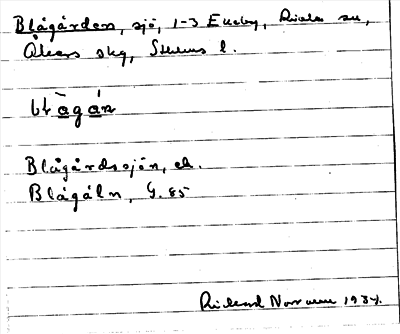 Blågården, sjö, 1-3 Ekeby, Riala sn,
Åkers skg, Sthlms l.
blàgán
Blågårdssjön, ek.
Blågåln, G. 85
Rickard Norreen 1934.